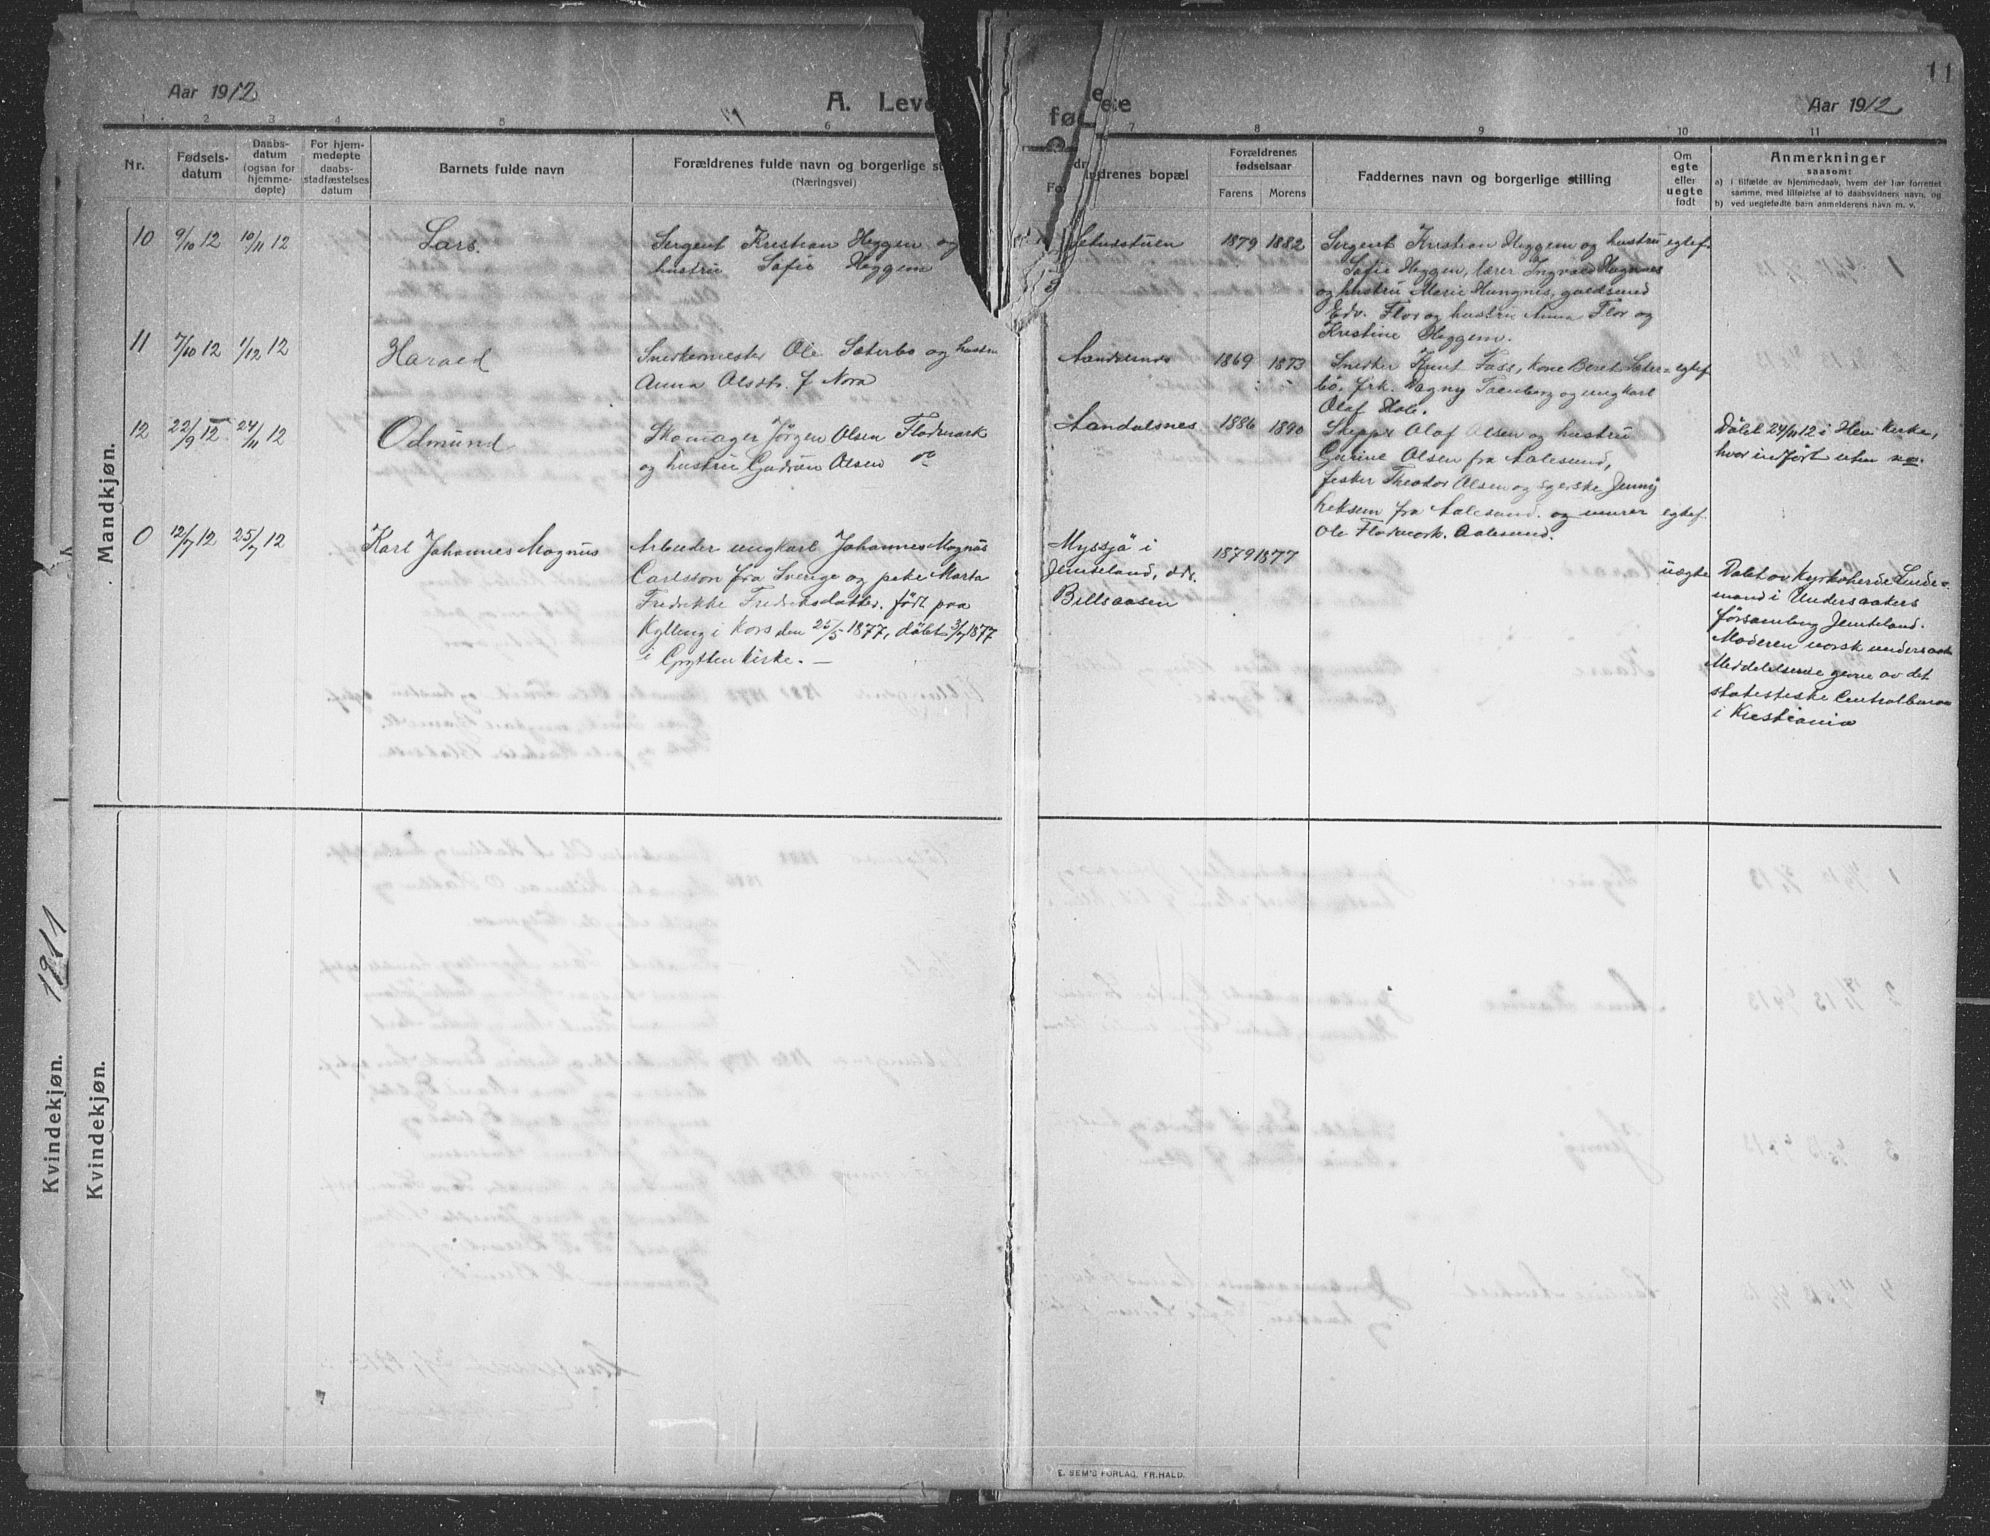 Aar 1912
A. Leve
føe
de
Aar 1912
11
1 2 3 4 5 6 7 8 9 10 11
Nr.
Fødsels-
datum
Daabs-
datum
(ogsaa for
hjemme-
døpte)
For hjem-
medøpte
daabs-
stadfæstelses
datum
Barnets fulde navn
Forældrenes fulde navn og borgerlige
(Næringsvei)
ndrenes bopæl
Forældrenes
fødselsaar
Farens Morens
Faddernes navn og borgerlige stilling
Om
egte
eller
uegte
født
Anmerkninger
saasom:
a) i tilfælde av hjemmedaab, hvem der har forrettet
samme, med tilføielse af to daabsvidners navn, og
b) ved uegtefødte barn anmelderens navn m. v.
Mandkjøn.
10 9/10 12 10/11 12 Lars.
Sergent Kristian Heggem og
hustru Sofie Heggem
Setnesstuen
1879 1882
Sergent Kristian Heggem og hustru egtef.
Sofie Heggem, lærer Ingvald
og hustru Marie Hungnes, guldsmed
Edv. Flor og hustru Anna Flor og
Kristine Heggem.
11 7/10 12 1/12 12 Harald
Snekermester Ole Sæterbø og hustru
Anna Olsdtr. f. Nora
Aandalsnes
1869 1873
Snekker Knut Fass, kone Beret Sæter= egtef
bø, frk. Dagny og ungkarl
Olaf Hole.
12 22/9 12 24/11 12 Odmund
Skomager Jørgen Olsen Flodmark
og hustru Gudrun Olsen
Aandalsnes
1886 1890
Skipper Olaf Olsen og hustru
Gurine Olsen fra Aalesund,
fisker Theodor Olsen og syerske Jenny
fra Aalesund. og murer egtef.
Ole Flodmark. Aalesund.
Døbt 24/11 12 i Hen kirke,
hvor indført uten no.
0 12/7 12 25/7 12 Karl Johannes Magnus
Arbeider ungkarl Johannes Magnus
Carlsson fra Sverige og pike Marta
Fredrikke Fredriksdatter. født paa
Kylling i Kors den 25/5 1877, døbt 3/7 1877
i Grytten kirke. —
Myssjö i
Jemteland,
Billsaasen
1879 1877
uegte
Døbt av Kyrkoherde Linde=
mand i Undersaakers
församling Jemteland.
Moderen norsk undersaat
Meddelelserne givne av det
statistiske Centralbureau
i Kristiania
Kvindekjøn.
1911
Kvindekjøn.
E. SEM'S FORLAG, FR.HALD.